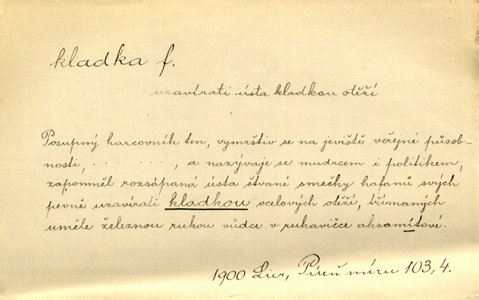 kladka f.
uzavírati ústa kladkou otěží
Posupný harcovník ten, vymrštiv se na jeviště veřejné působ-
nosti, . . . . . . . , a nazývaje se mudrcem i politikem,
zapomněl rozsápaná ústa štvané smečky hafanů svých
pevně uzavírati kladkou ocelových otěží, třímaných
uměle železnou rukou vůdce v rukavičce aksamítové.
1900 Lier, Píseň míru 103, 4.